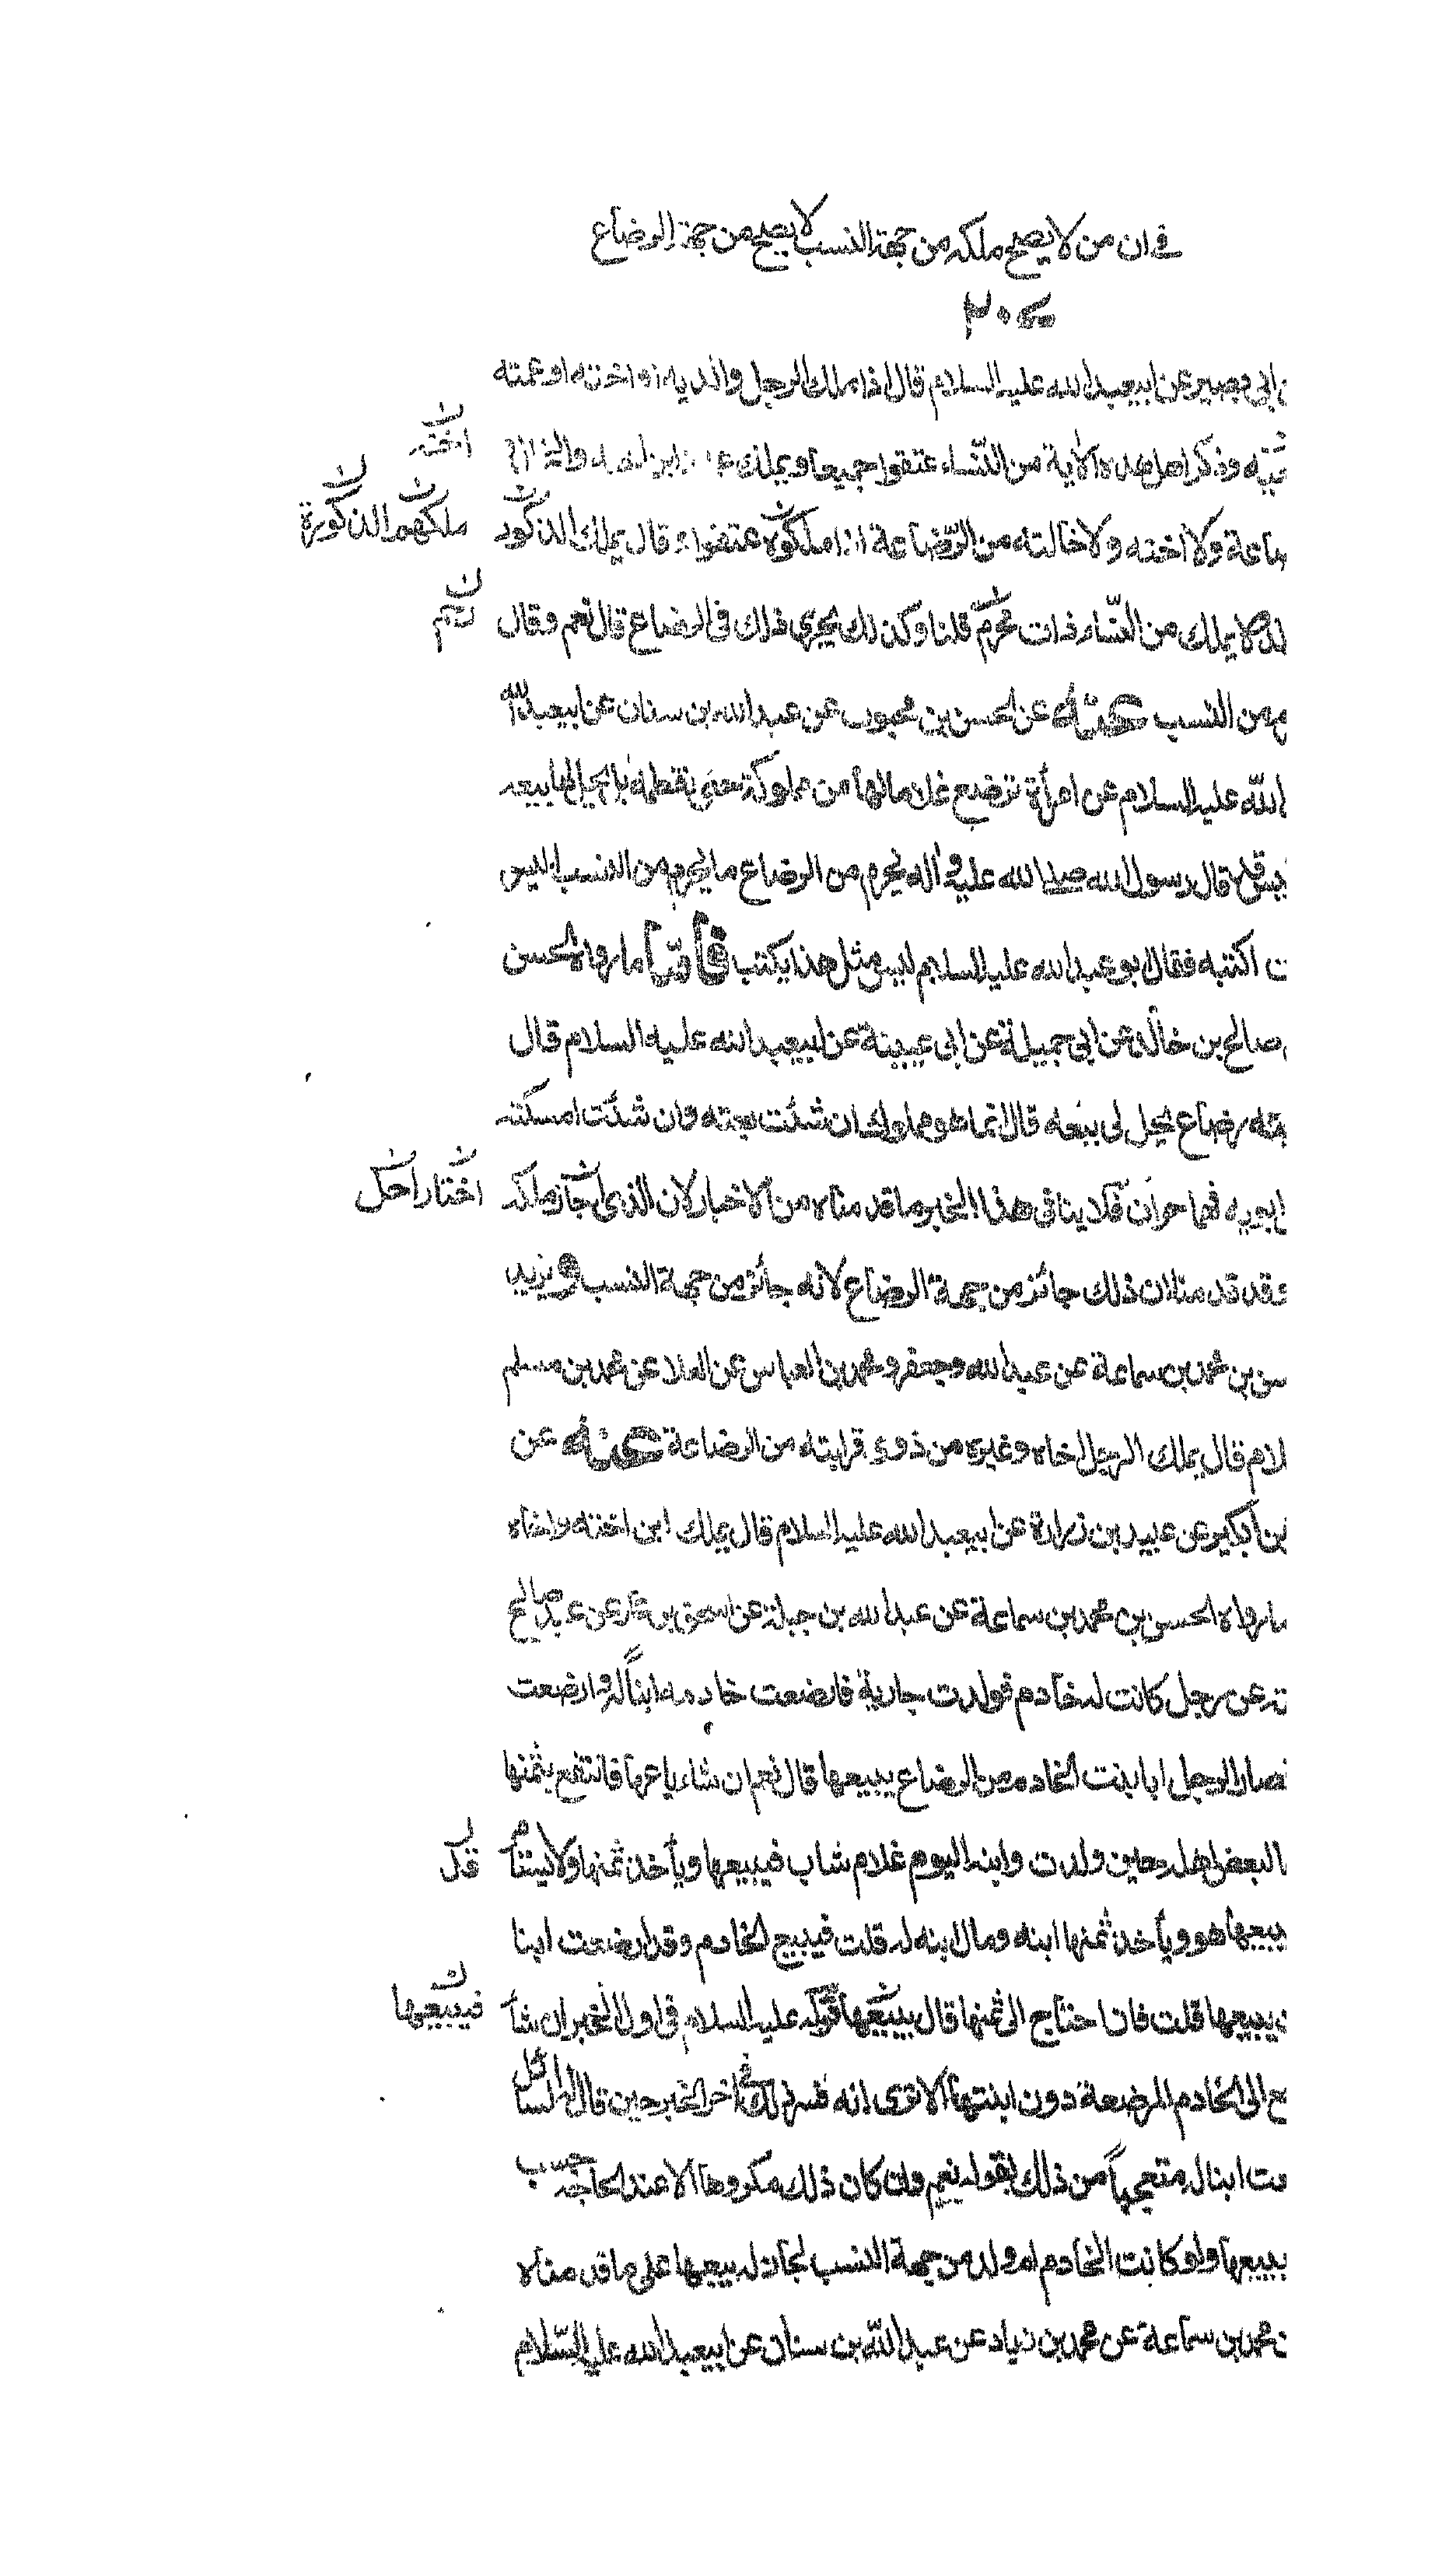 في ان من لا يصح ملكه من جهة النسب لا يصح من جهة الرضاع
٢٠
ابي بصير عن ابيعبد الله عليه السلام قال اذا ملك الرجل والديه او اخته او عمته
وذكر اهل هذه الآية من النساء عتقوا جميعا ويملك
اخته
ضاعة ولا اخته ولا خالته من الرضاعة اذا ملكوه عتقوا قال يملك الذكور
ملكهم الذكورة
لده لا يملك من النساء ذات محرم قلنا وكذلك يجري ذلك في الرضاع قال نعم وقال
من النسب عنه عن الحسن بن محبوب عن عبد الله بن سنان عن ابيعبد الله
الله عليه السلام عن امرأة ترضع غلاما لها من مملوكة حتى تفطمه يحل لها بيعه
قال رسول الله صلى الله عليه وآله يحرم من الرضاع ما يحرم من النسب اليس
ت اكتبه فقال ابو عبد الله عليه السلام ليس مثل هذا يكتب فأمّا ما رواه الحسن
صالح بن خالد عن ابي جميلة عن ابي عيينة عن ابيعبد الله عليه السلام قال
رضاع يحل لي بيعه قال انما هو مملوك ان شئت بعته وان شئت امسكته
ابويه فهما حران فلا ينافي هذا الخبر ما قدمناه من الاخبار لان الذي اجاز ملكه
اختار احل
فقد قدمنا ان ذلك جائز من جهة الرضاع لانه جائز من جهة النسب ويزيد
سن بن محمد بن سماعة عن عبد الله وجعفر ومحمد بن العباس عن العلا عن محمد بن مسلم
لام قال يملك الرجل اخاه وغيره من ذوي قرابته من الرضاعة عنه عن
بن بكير عن عبيد بن زرارة عن ابيعبد الله عليه السلام قال يملك ابن اخته واخاه
ما رواه الحسن بن محمد بن سماعة عن عبد الله بن جبلة عن اسحق بن عمار عن عبد صالح
عن رجل كانت له خادم فولدت جارية فارضعت خادمه ابناً له وارضعت
فصار الرجل ابا بنت الخادم من الرضاع يبيعها قال نعم ان شاء باعها فانتفع بثمنها
لبعض اهله حين ولدت وابنه اليوم غلام شاب فيبيعها ويأخذ ثمنها ولا يستأمر
قال
يبيعها هو ويأخذ ثمنها ابنه ومال ابنه له قلت فيبيع الخادم وقد ارضعت ابنا
يبيعها قلت فان احتاج الى ثمنها قال يبيعها قوله عليه السلام في اول الخبر ان شاء
فيبيعها
ع الى الخادم المرضعة دون ابنتها الا ترى انه فسر ذلك في اخر الخبر حين قال له السائل
عت ابنا له متعجباً من ذلك بقوله نعم وان كان ذلك مكروها الا عند الحاجة حسب
يبيعها ولو كانت الخادم ام ولد من جهة النسب لجاز له بيعها على ما قدمناه
محمد بن سماعة عن محمد بن زياد عن عبد الله بن سنان عن ابيعبد الله عليه السلام